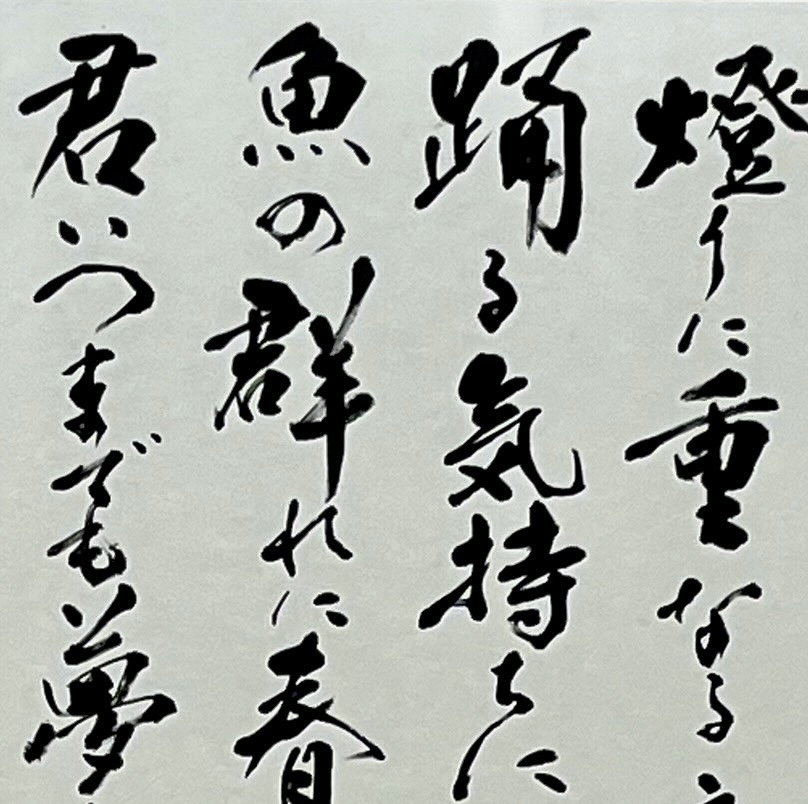 燈りに重なる
踊る気持ちに
魚の群れに春
君いつまでも夢